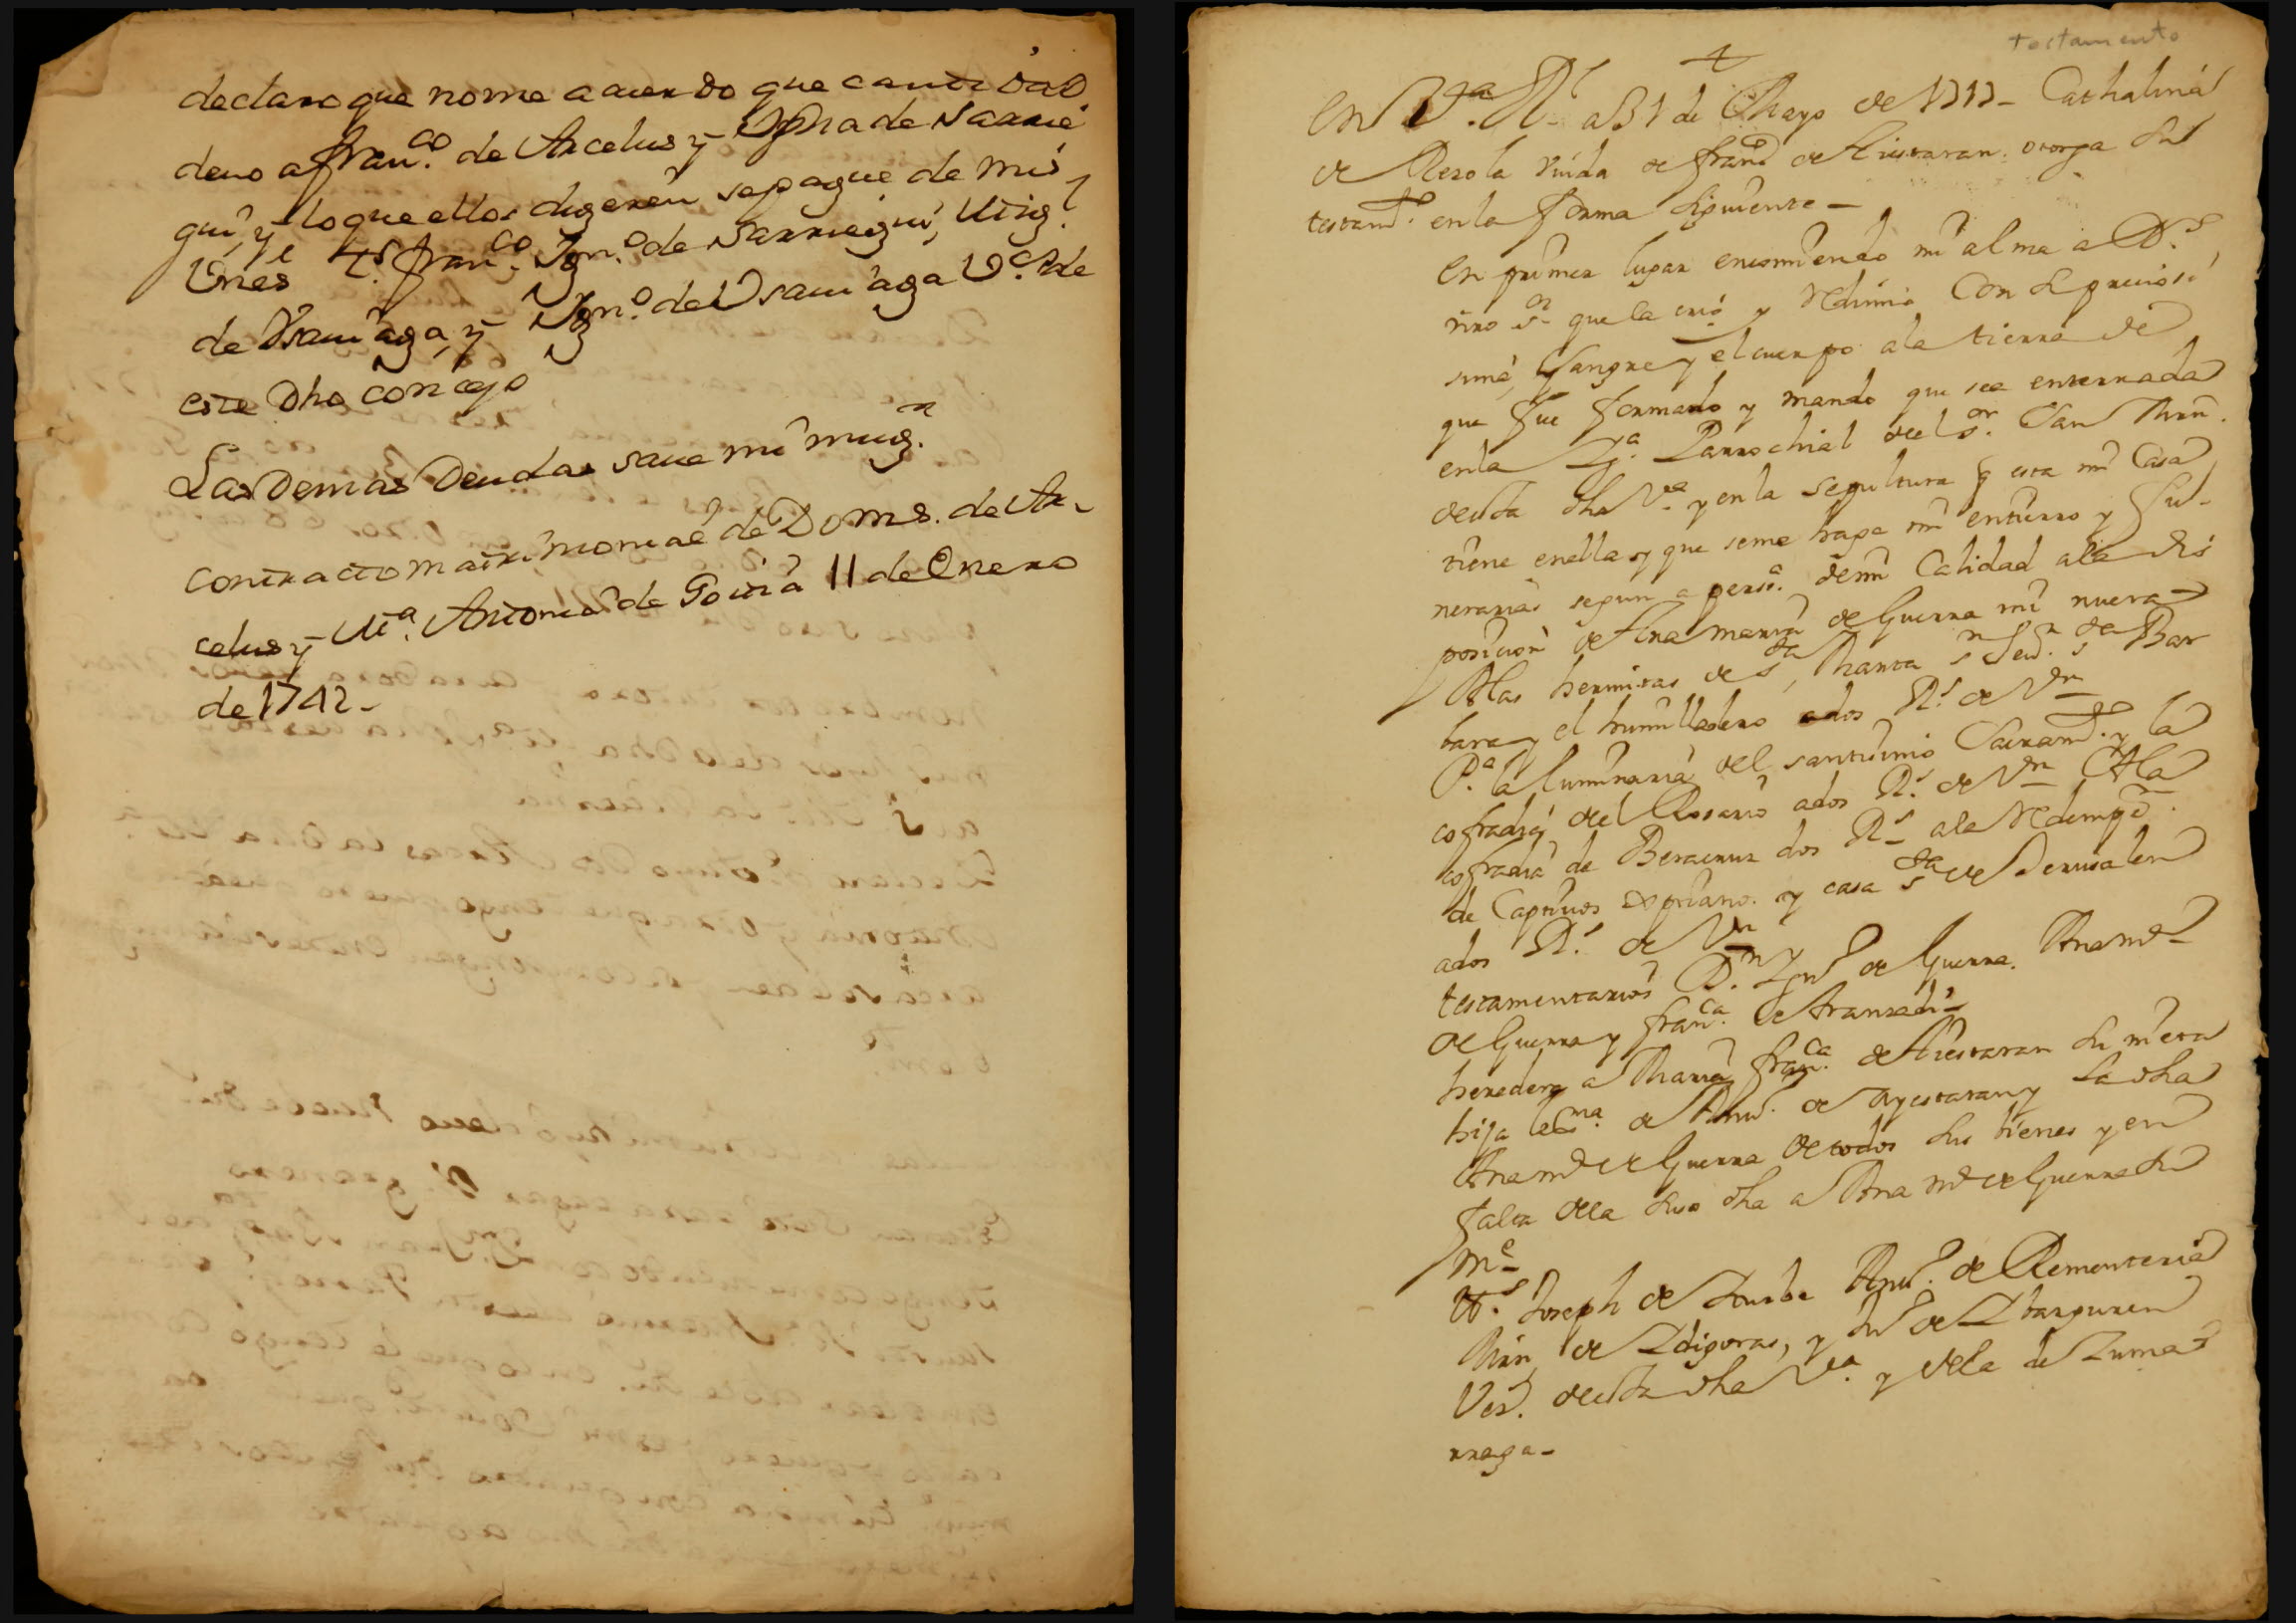 declaro que nome acuerdo que cantidad
deuo a fran.co de Arcelus y Ygna de Sarrie
gui, y lo que ellos digeren sepague de mis
Vnes ts. fran.co Ygn.o de Sarriegui, Mig.l
de Vsauiaga, y Ygn.o de Vsauiaga V.os de
este Dho conçejo
Las Demas Deudas saue mi mug.r
contracto matrimonial de Doms. de Ar-
celus y M.a Antonia de Goitia 11 de Enero
de 1742-
testamento
En V.a R.l a 31 de Mayo de 1717- Cathalina
de viuda de fran.co de Aiestaran. otorga su
testam.to en la forma siguiente-
En primer lugar encomiendo mi alma a D.s
nro S.r que la crió y Redimio Con su preciosi
sima Sangre y el cuerpo ala tierra de
que fue formado y mando que sea enterrada
enla Yg.a Parrochial del S.or San Mrn.
desta dha V.a y enla sepultura q esta mi Casa
tiene enella y que seme haga mi entierro y fu-
nerarias segun a perso.a demi Calidad ala dis
posicion de Ana maria de Guerra mi nuera-
Alas hermitas de S.ta Marta S.n S.ta Bar
bara y el humilladero ados R.s de V.n
P.a la luminaria del santisimo Sacram.to y la
cofradia del Rosario ados R.s de V.n Ala
cofradia de Beracruz dos R.s ala Redempn.
de Captiuos xprianos. y casa S.ta de Jerusalen
ados R.s de V.n
testamentarios D.n de Guerra. Ana m.a
de Guerra y fran.ca de Aranzadi-
heredera a Maria fran.ca de Aiestaran su nieta
hija legma. de de Ayestaran y la dha
Ana m.a de Guerra de todos sus bienes y en
falta della suso dha a Ana m.a de Guerra su
M.e
tt.s Joseph de Yturbe de Rementeria
Mrn de Ydigoras, y de Ybarguren
Vez.s desta dha V.a y dela de Zuma-
rraga-